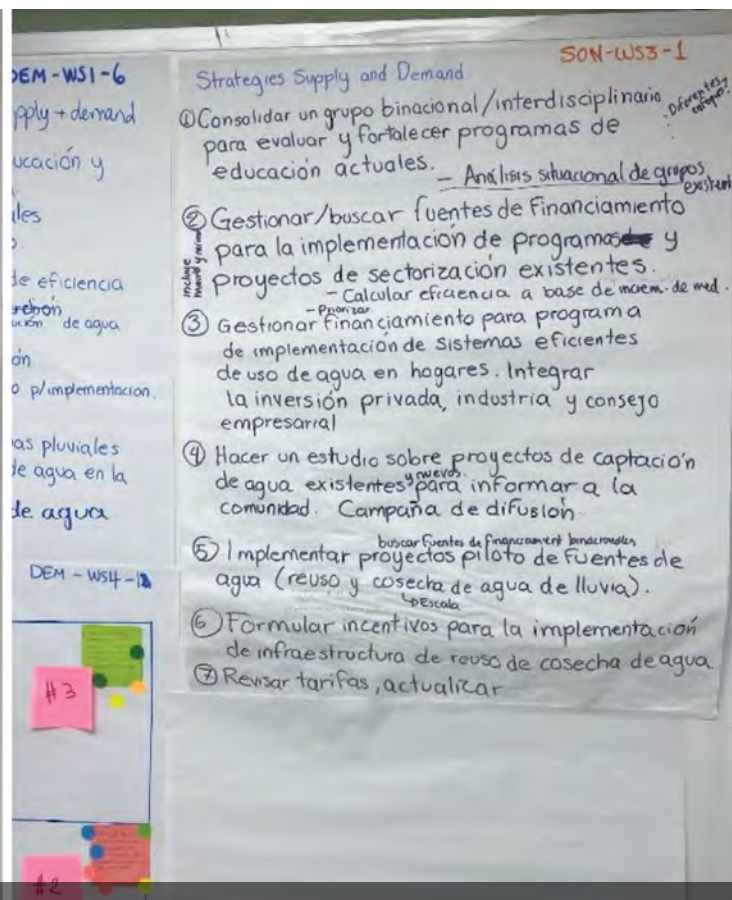 DEM-WS1-6
pply + demand
ucación y
les
de eficiencia
ución de agua
ón
o p/implementacion.
as pluviales
de agua en la
de agua
DEM - WS4-1
#3
#2
SON-WS3-1
Strategies Supply and Demand
① Consolidar un grupo binacional/interdisciplinario
Diferentes
para evaluar y fortalecer programas de
educación actuales. - Análisis situacional de grupos
existent
② Gestionar/buscar fuentes de financiamiento
incluye
para la implementación de programas y
proyectos de sectorización existentes.
- Calcular eficiencia a base de increm. de med.
- Priorizar
③ Gestionar financiamiento para programa
de implementación de sistemas eficientes
de uso de agua en hogares. Integrar
la inversión privada, industria y consejo
empresarial
④ Hacer un estudio sobre proyectos de captación
y nuevos
de agua existentes para informar a la
comunidad. Campaña de difusión
buscar fuentes de financiament binacionales
⑤ Implementar proyectos piloto de fuentes de
agua (reuso y cosecha de agua de lluvia).
↳ Escala
⑥ Formular incentivos para la implementación
de infraestructura de reuso de cosecha de agua.
⑦ Revisar tarifas, actualizar